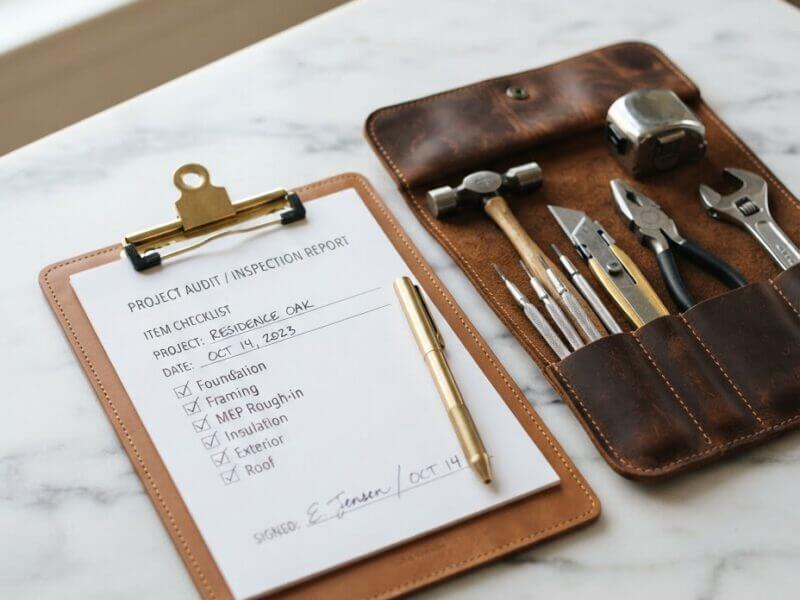 PROJECT AUDIT / INSPECTION REPORT
ITEM CHECKLIST
PROJECT: RESIDENCE OAK
DATE: OCT 14, 2023
Foundation
Framing
MEP Rough-in
Insulation
Exterior
Roof
SIGNED: E Jensen / OCT 14